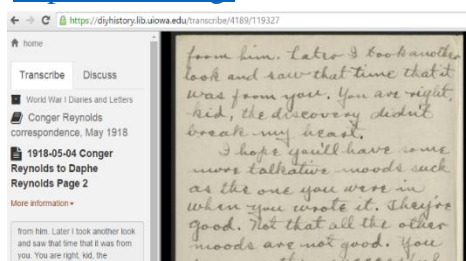 https://diyhistory.lib.uiowa.edu/transcribe/4189/119327
home
Transcribe Discuss
World War I Diaries and Letters
Conger Reynolds
correspondence, May 1918
1918-05-04 Conger
Reynolds to Daphe
Reynolds Page 2
More information
from him. Later I took another look
and saw that time that it was from
you. You are right, kid, the
from him. Later I took another
look and saw that time that it
was from you. You are right,
kid, the discovery didn't
break my heart.
I hope you'll have some
more talkative moods such
as the one you were in
when you wrote it. They're
good. Not that all the other
moods are not good. You